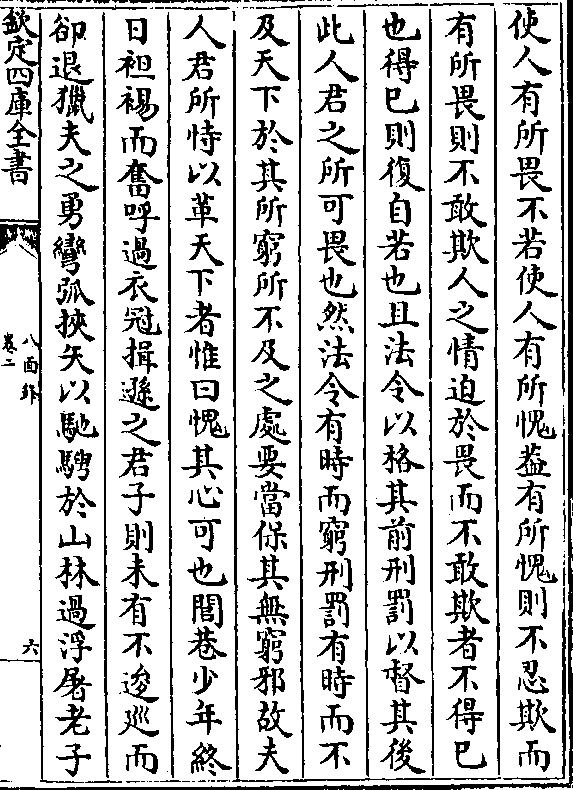 使人有所畏不若使人有所愧葢有所愧則不忍欺而
有所畏則不敢欺人之情迫於畏而不敢欺者不得已
也得已則復自若也且法令以格其前刑罰以督其後
此人君之所可畏也然法令有時而窮刑罰有時而不
及天下於其所窮所不及之處要當保其無窮邪故夫
人君所恃以革天下者惟曰愧其心可也閭巷少年終
日袒裼而奮呼過衣冠揖遜之君子則未有不逡廵而
卻退獵夫之勇彎弧挾矢以馳騁於山林過浮屠老子
欽定四庫全書
八面鋒
卷二
六